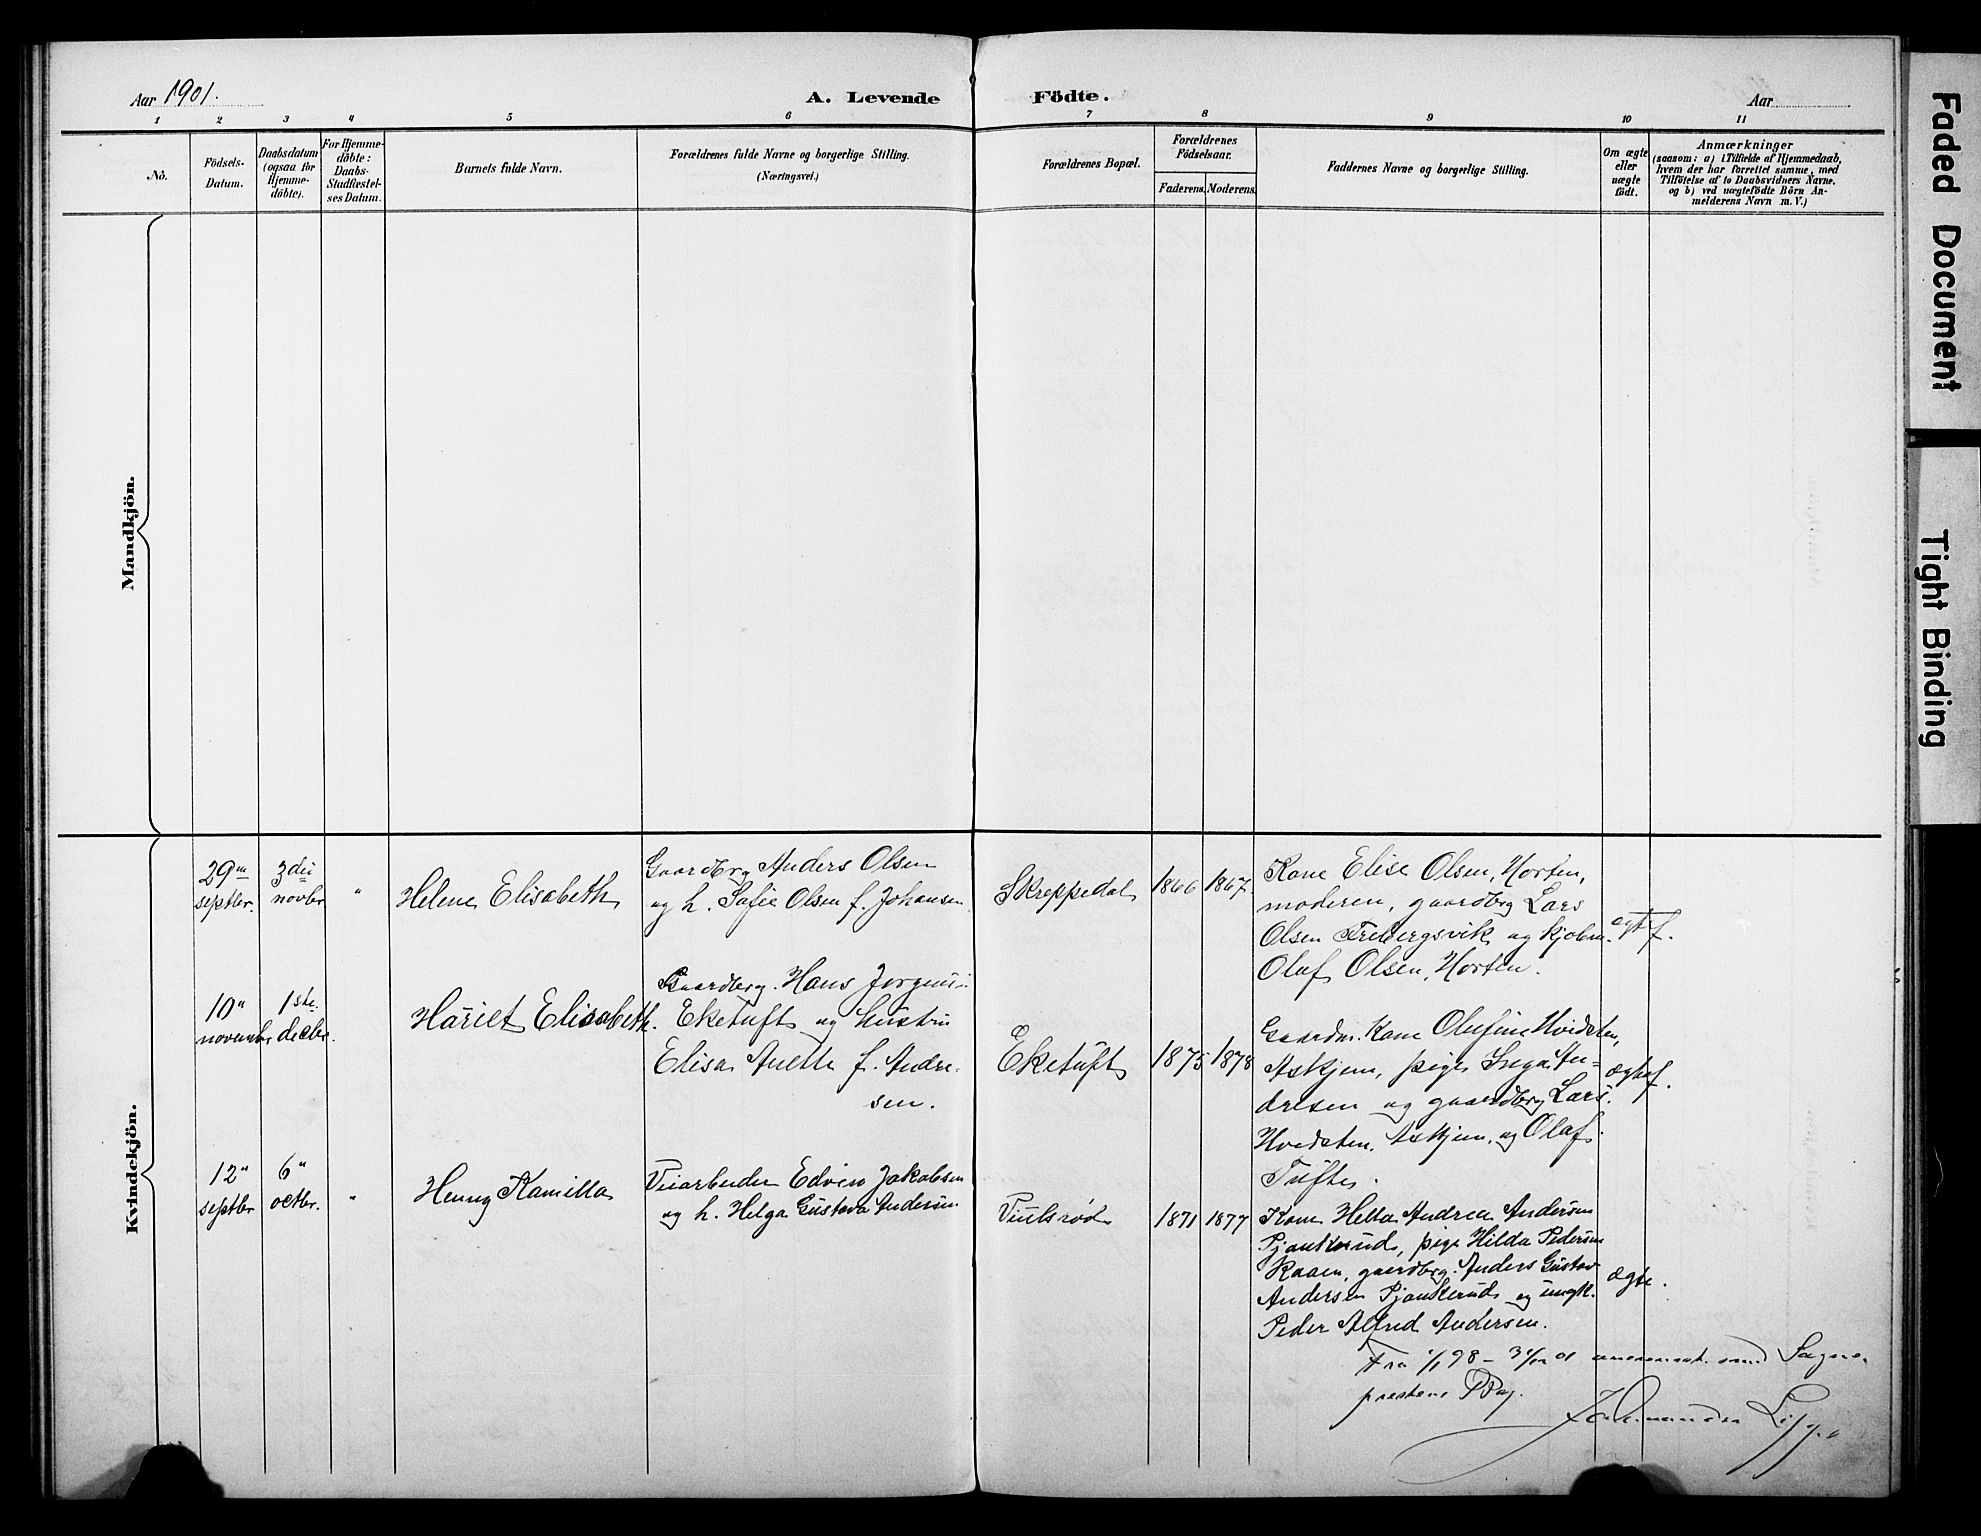 Aar 1901.
A. Levende Födte.
Aar
1 2 3 4 5 6 7 8 9 10 11
No.
Födsels-
Datum.
Daabsdatum
(ogsaa för
Hjemme-
döbte).
For Hjemme-
döbte:
Daabs-
Stadfæstel-
ses Datum.
Barnets fulde Navn.
Forældrenes fulde Navne og borgerlige Stilling.
(Næringsvei.)
Forældrenes Bopæl.
Forældrenes
Födselsaar.
Faderens. Moderens.
Faddernes Navne og borgerlige Stilling.
Om ægte
eller
uægte
födt.
Anmærkninger
(saasom: a) i Tilfælde af Hjemmedaab,
hvem der har forrettet samme, med
Tilföielse af to Daabsvidners Navne,
og b) ved uægtefödte Börn An-
melderens Navn m. V.)
Mandkjön.
Kvindekjön.
29
septbr.
3die
novbr
"
Helene Elisabeth
Gaardbrg Anders Olsen
og h. Sofie Olsen f. Johansen
Skreppedal
1866
1867.
Kone Elise Olsen, Horten,
moderen, gaardbrg Lars
Olsen Trebergsvik og kjøbm.
Olaf Olsen, Horten.
ægte f.
10"
novembr
1ste
decbr.
Hariet Elisabeth.
Gaardbrg. Hans Jørgensen
Eketuft og hustru
Elisa Anette f. Andre-
sen.
Eketuft
1875
1878
Gaardm. Kone Olufine Hvidsten,
Askjem, pige Inga An-
dresen og gaardbrg Lars
Hvidsten, Askjem, og Olaf
Tufte.
ægte f.
12"
septbr
6"
octbr.
"
Henny Kamilla
Veiarbeider Edvin Jakobsen
og h. Helga Gustava Andersen
Viulsrød
1871
1877
Kone Hella Andrea Andersen
Pjonkerud, pige Hilda Pedersen
Kaaen, gaardbrg. Anders Gustav
Andersen Pjonkerud og ungk.
Peder Alfred Andersen.
ægte.
Fra 1/1 98 - 31/12 01 med Sogne-
prestens
Faded Document
Tight Binding